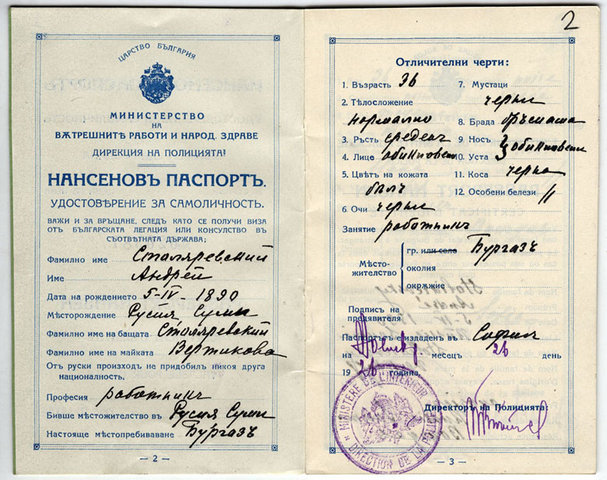 ЦАРСТВО БЪЛГАРИЯ
МИНИСТЕРСТВО
НА
ВѪТРЕШНИТѢ РАБОТИ И НАРОД. ЗДРАВЕ
ДИРЕКЦИЯ НА ПОЛИЦИЯТА
НАНСЕНОВЪ ПАСПОРТЪ.
УДОСТОВѢРЕНИЕ ЗА САМОЛИЧНОСТЬ.
ВАЖИ И ЗА ВРЪЩАНЕ, СЛЕДЪ КАТО СЕ ПОЛУЧИ ВИЗА
ОТЪ БЪЛГАРСКАТА ЛЕГАЦИЯ ИЛИ КОНСУЛСТВО ВЪ
СЪОТВѢТНАТА ДЪРЖАВА;
Фамилно име Столяревский
Име Андрей
Дата на рождението 5-IV-1890
Мѣсторождение Русия Сумы
Фамилно име на бащата Столяревский
Фамилно име на майката Вертикова
От руски произход не придобил никоя друга
националность.
Професия работникъ
Бивше мѣстожителство въ Русия Сумы
Настояще мѣстопребиваване Бургазъ
- 2 -
2
Отличителни черти:
1. Възрасть 36
2. Тѣлосложение
нормално
3. Ръстъ среденъ
4. Лице обикновено
5. Цвѣтъ на кожата
бѣлъ
6. Очи черни
7. Мустаци
черни
8. Брада
9. Носъ обикновенъ
10. Уста
11. Коса черна
12. Особени белези //
Занятие работникъ
Мѣсто-
жителство
гр. или село Бургазъ
околия
окръжие
Подпись на
предявителя
Паспортъ е издаденъ въ София
на месецъ 26 день
1926 година.
MINISTERE DE L'INTERIEUR
DIRECTION DE LA POLICE
Директоръ на Полицията:
- 3 -